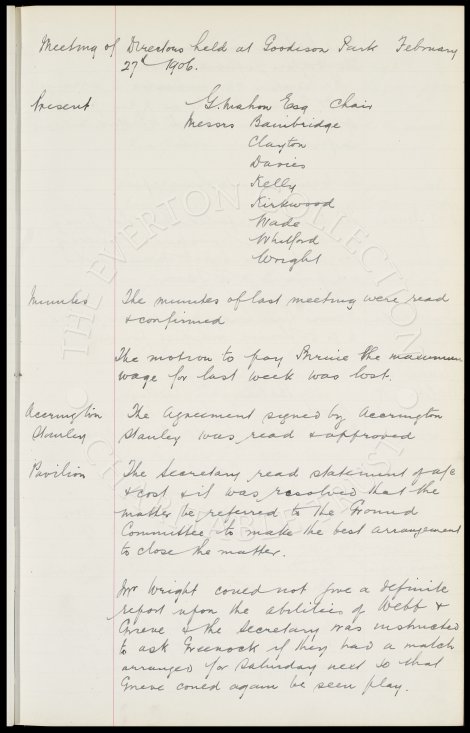 Meeting of Directors held at Goodison Park February
27th 1906.
Present
G. Mahon Esq Chair
Messrs Bainbridge
Clayton
Davies
Kelly
Kirkwood
Wade
Whitford
Wright
Minutes
The minutes of last meeting were read
& confirmed
The motion to pay the maximum
wage for last week was lost.
Accrington
Stanley
The agreement signed by Accrington
Stanley was read & approved
Pavilion
The Secretary read statement of a/c
& cost & it was resolved that the
matter be referred to the Ground
Committee to make the best arrangement
to close the matter.
Mr Wright could not give a definite
report upon the abilities of Webb &
Grieve & the Secretary was instructed
to ask Greenock if they had a match
arranged for Saturday next so that
Grieve could again be seen play.
THE EVERTON COLLECTION